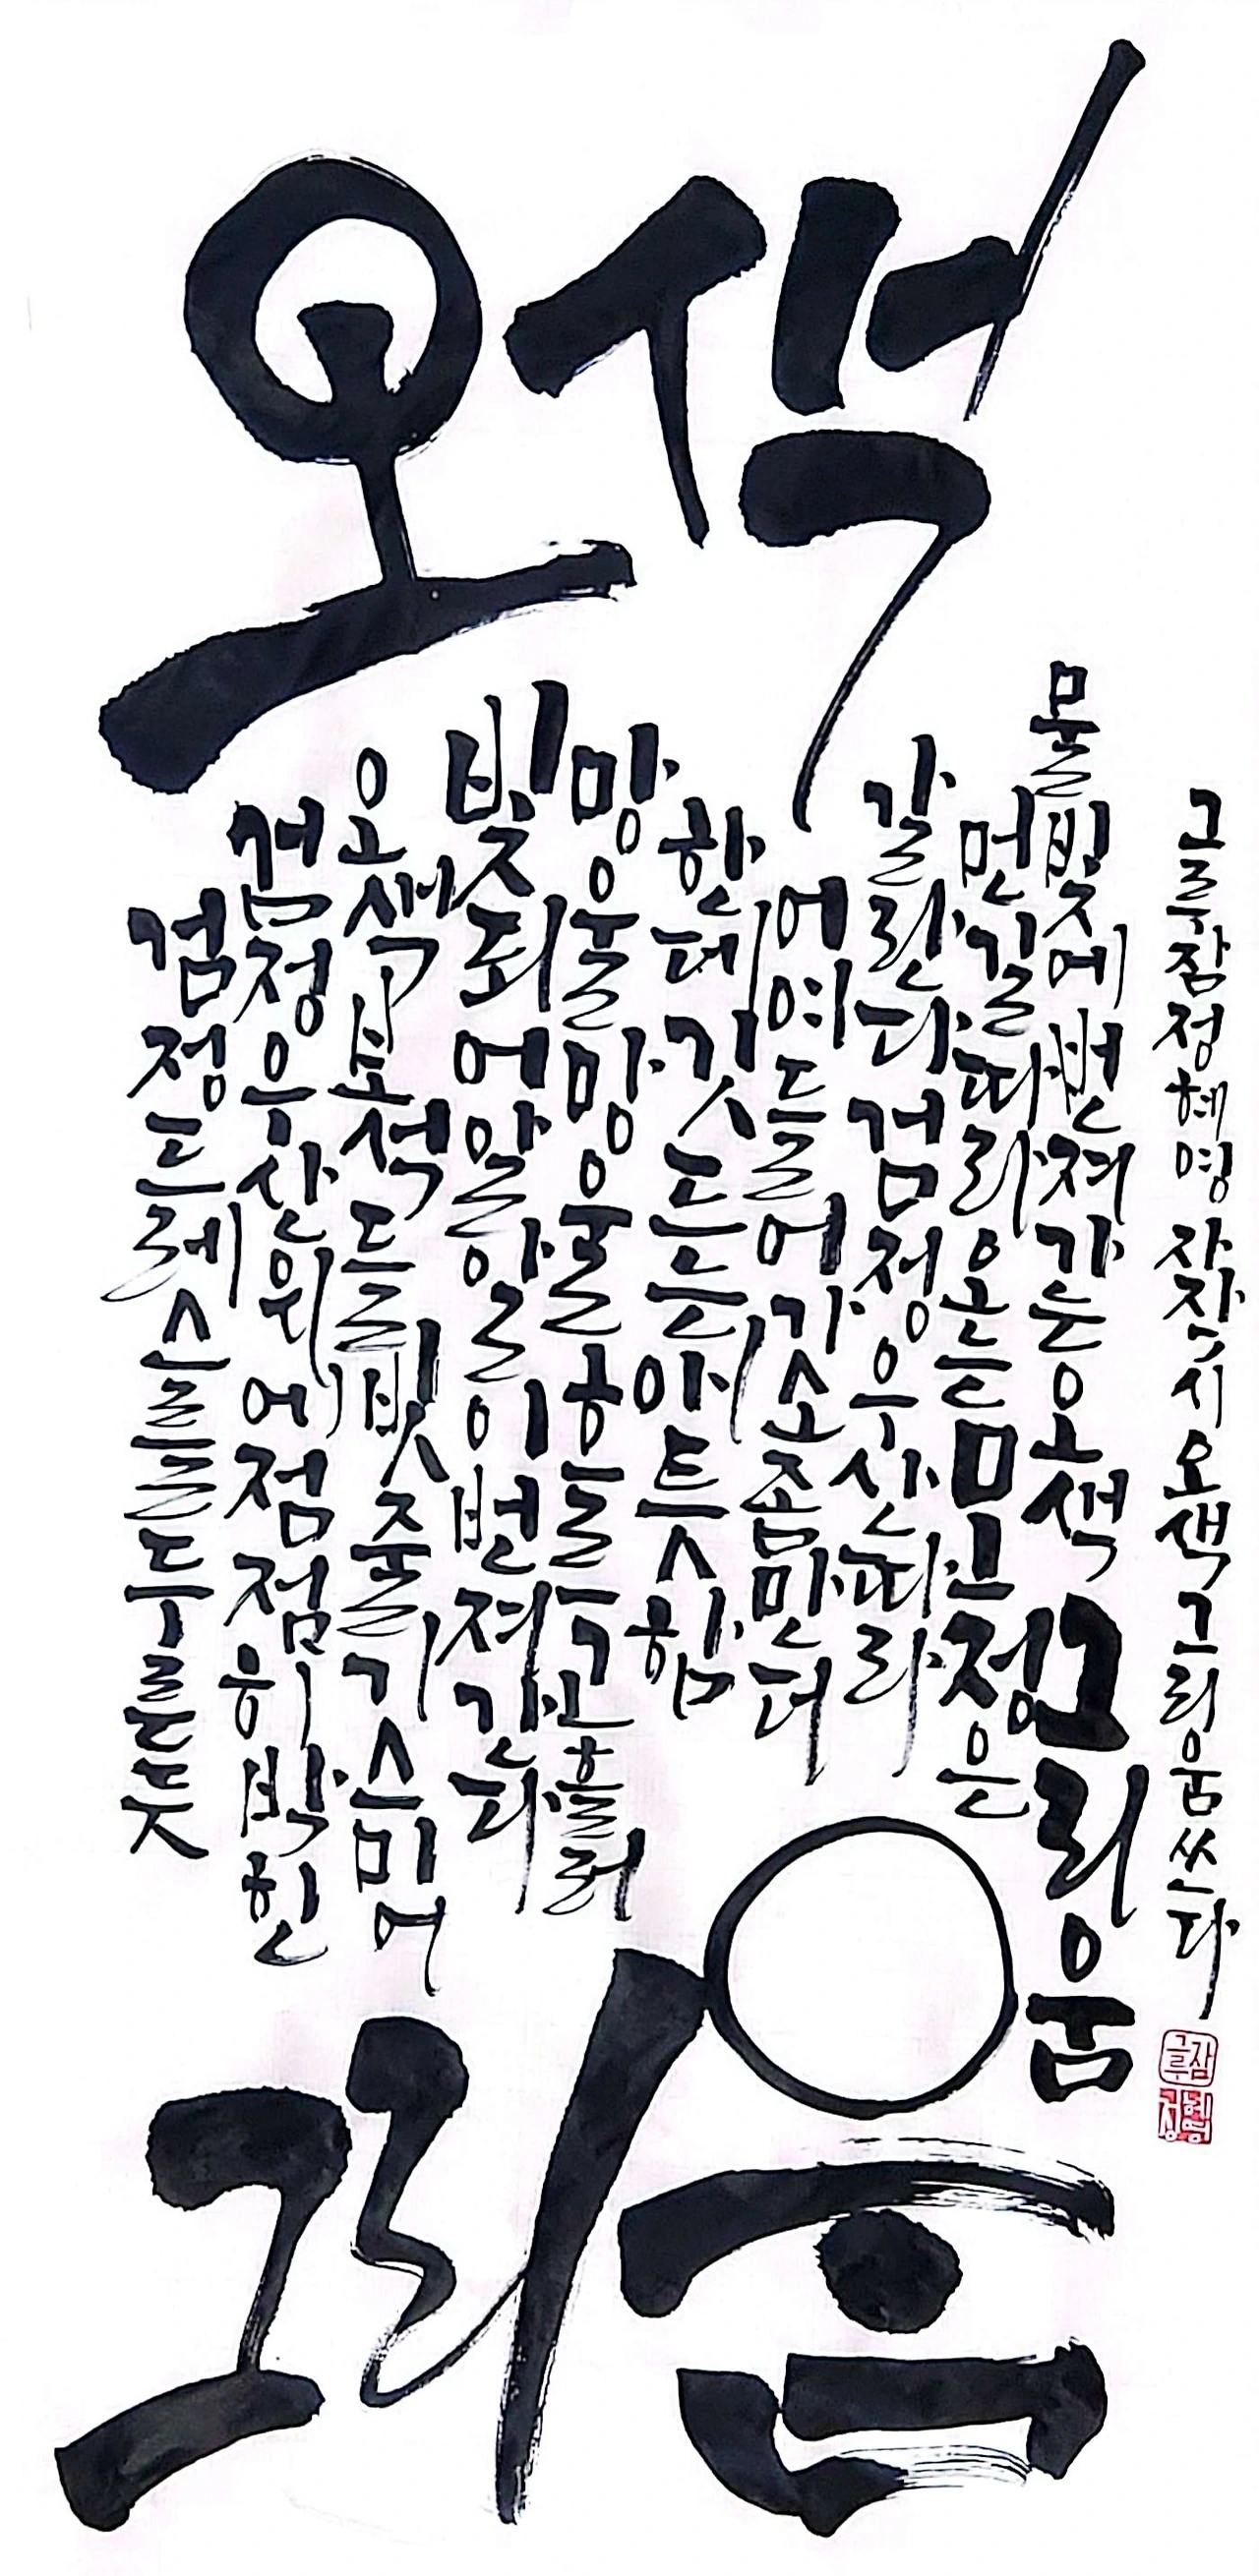 오색
그리움
검정드레스를두른듯
검정우산위에점점히박힌
오색보석들빗줄기스미어
빛되어알알이번져간다
망울망울 고흘러
한데깃드는애틋함
어여들어가소좀만더
갈란다검정우산따라
먼길따라 정은
물빛에번져가는오색그리움
그루잠정혜영자작시오색그리움쓰다
그루잠
정혜영